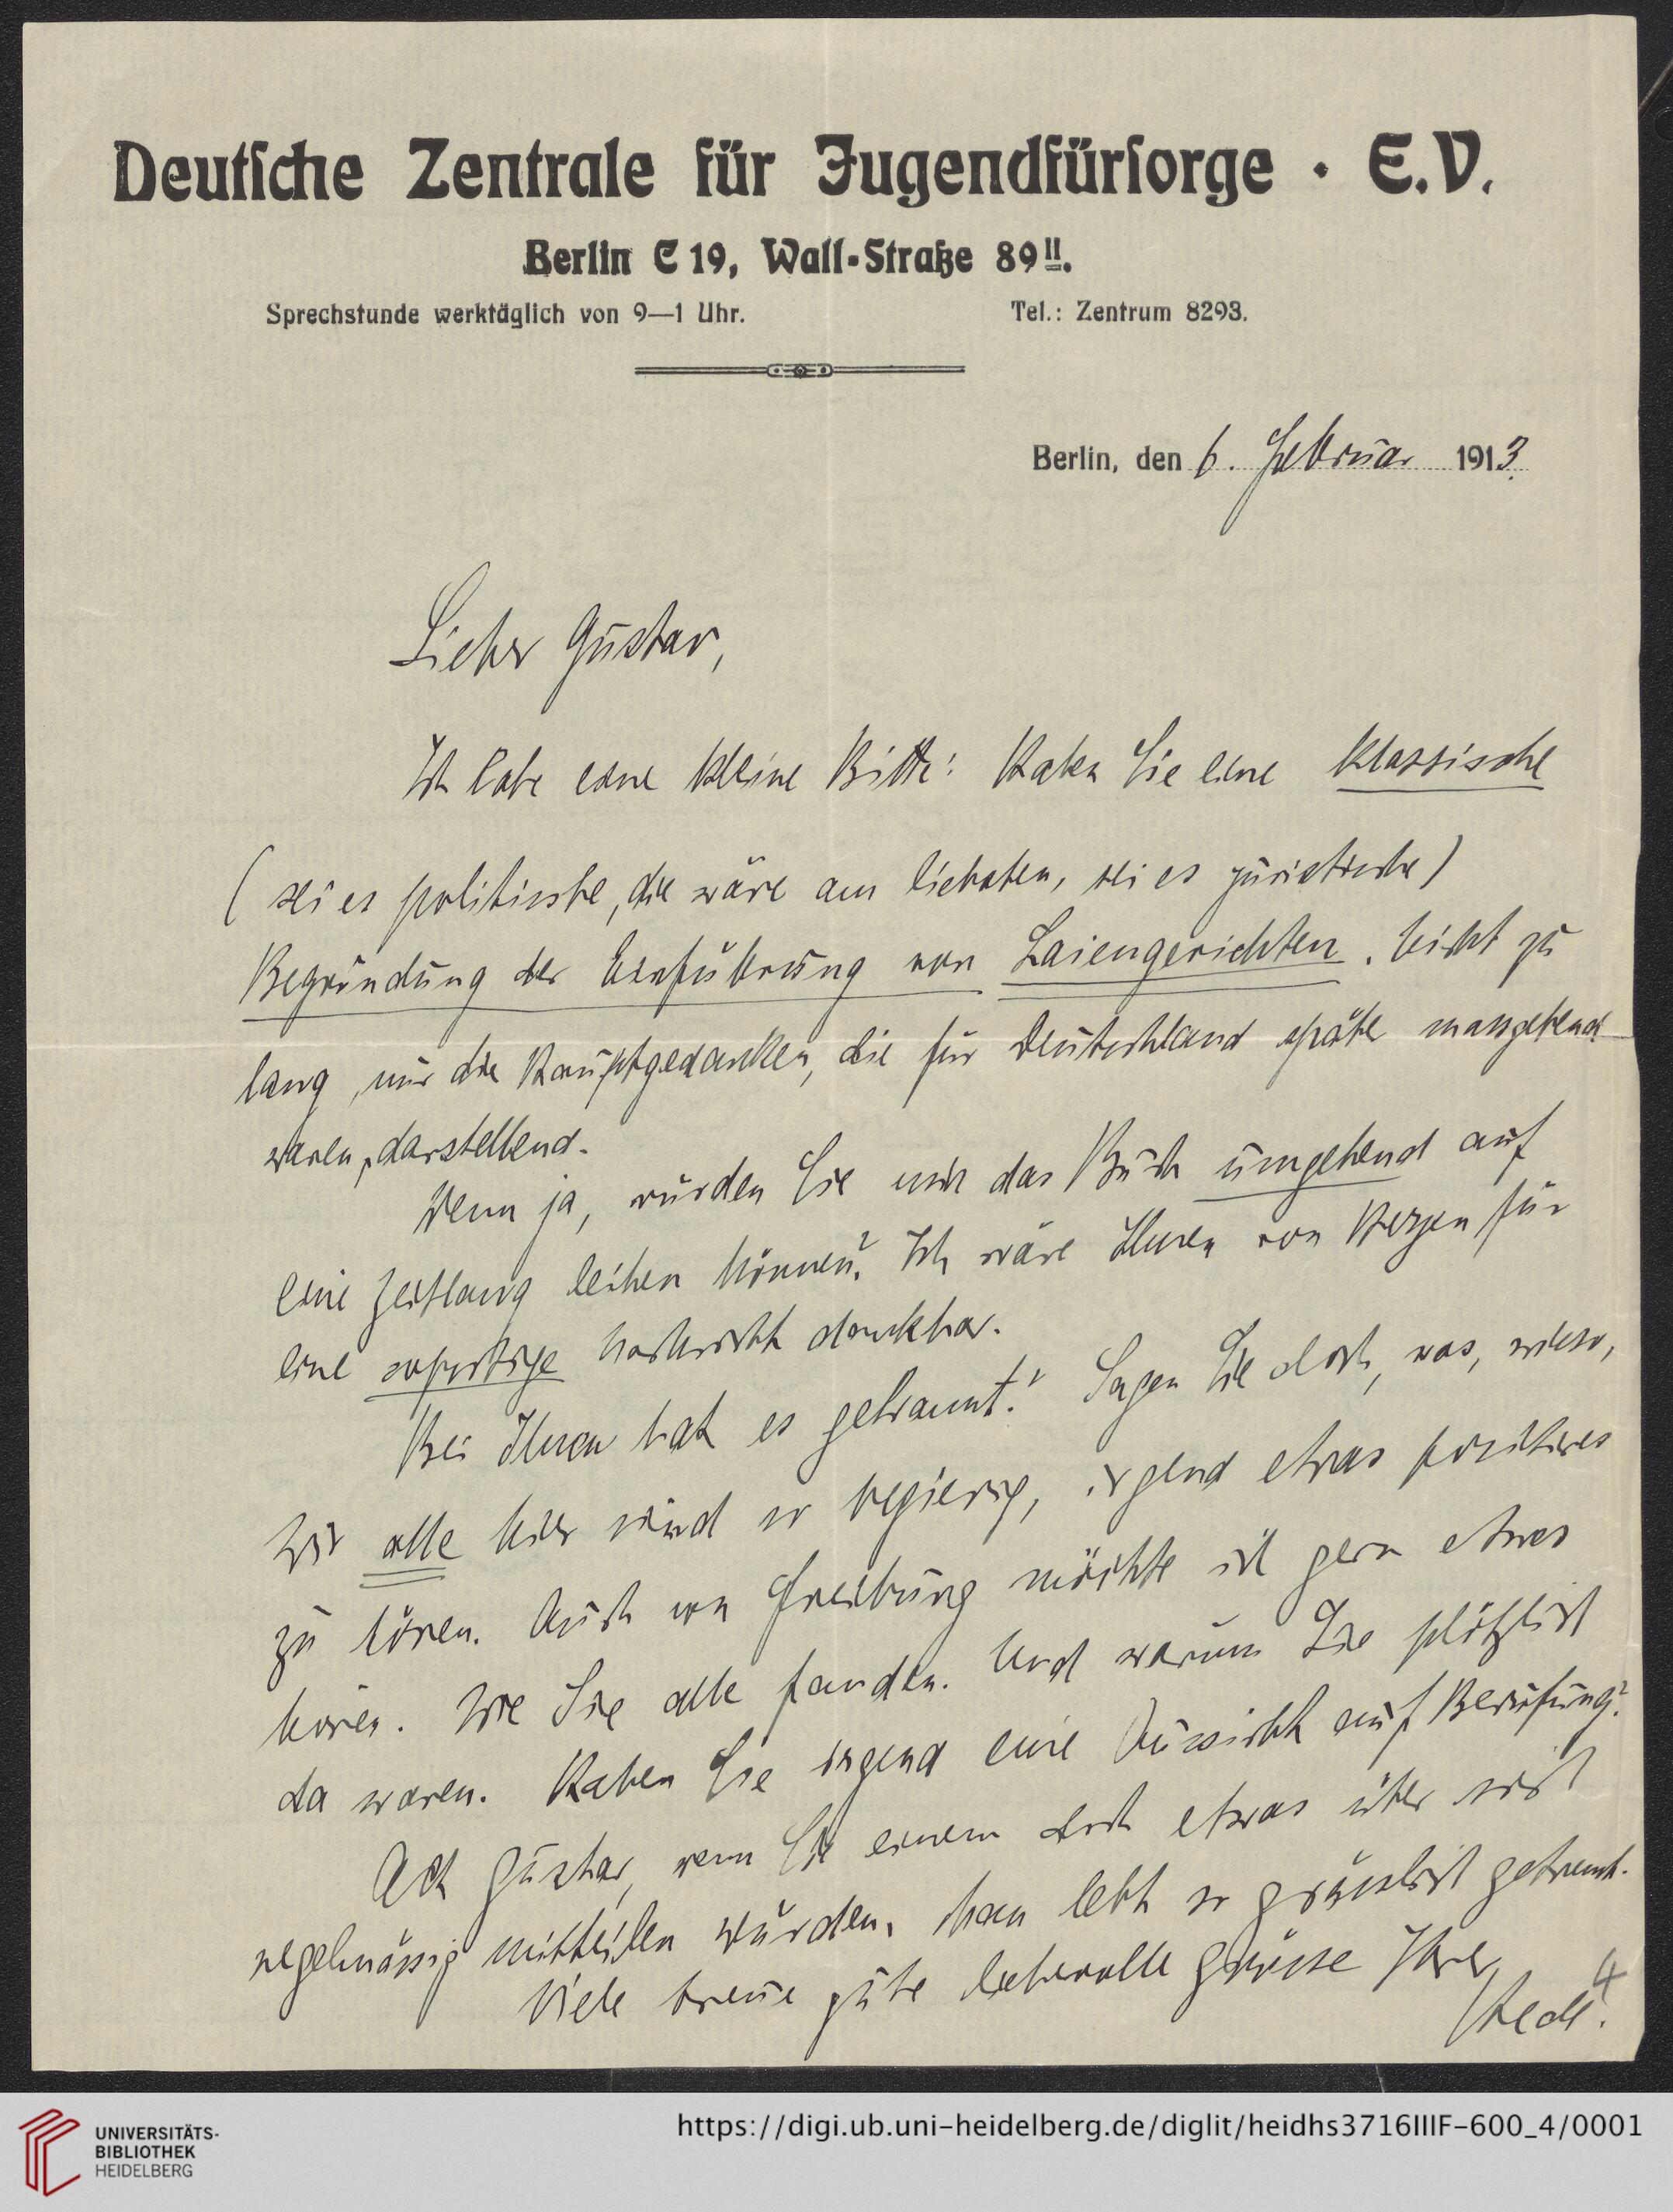 Deutsche Zentrale für Jugendfürsorge · E.V.
Berlin C 19, Wall-Straße 89 II.
Sprechstunde werktäglich von 9—1 Uhr.
Tel.: Zentrum 8293.
Berlin, den 6. Februar 1913.
Lieber Gustav,
Ich habe eine kleine Bitte: Haben Sie eine klassische
(sei es politische, die wäre am liebsten, sei es juristische)
Begründung der Einführung von Laiengerichten. Nicht zu
lang, nur die Hauptgedanken, die für Deutschland später massgebend
waren, darstellend.
Wenn ja, würden Sie mir das Buch umgehend auf
eine Zeitlang leihen können? Ich wäre Ihnen von Herzen für
eine sofortige Nachricht dankbar.
Bei Ihnen hat es gebrannt? Sagen Sie doch, was, wieso,
Wir alle hier sind so begierig, irgend etwas positives
zu hören. Auch von Freiburg möchte ich gern etwas
hören. Wie Sie alle fanden. Und warum Sie plötzlich
da waren. Haben Sie irgend eine Aussicht auf Berufung?
Ach Gustav, wenn Sie einem doch etwas über sich
regelmässig mitteilen würden. Man lebt so grässlich getrennt.
Viele treue gute liebevolle Grüsse Ihre
4
UNIVERSITÄTS-
BIBLIOTHEK
HEIDELBERG
https://digi.ub.uni-heidelberg.de/diglit/heidhs3716IIIF-600_4/0001